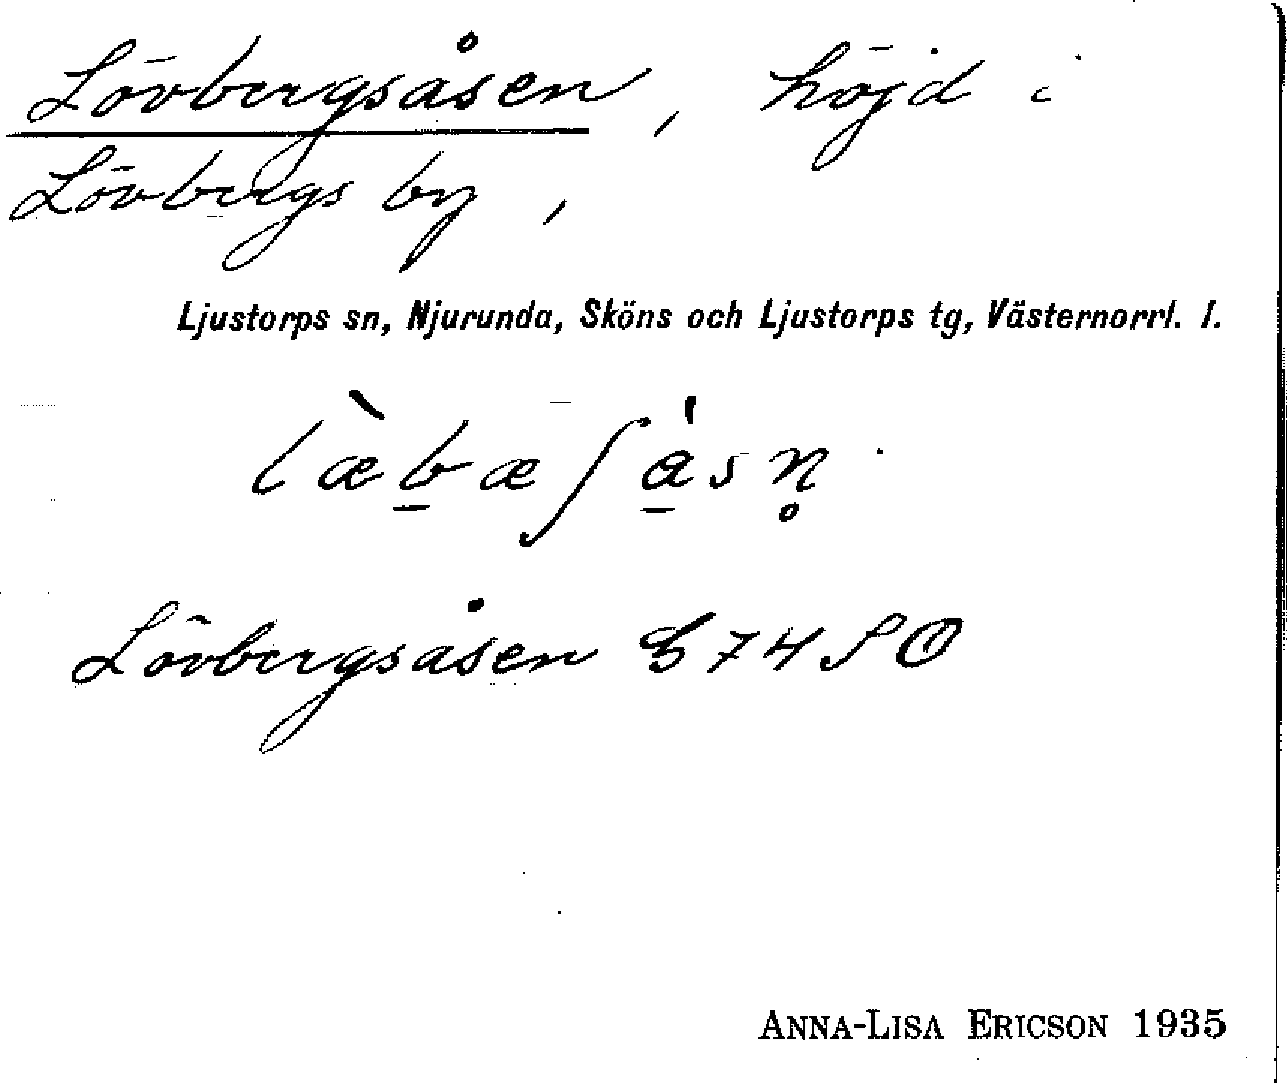 Lövbergsåsen, höjd i
Lövbergs by,
Ljustorps sn, Njurunda, Sköns och Ljustorps tg, Västernorrl. l.
læ̀bæʃåsn̥
Lövbergsåsen G 74 SO
ANNA-LISA ERICSON 1935